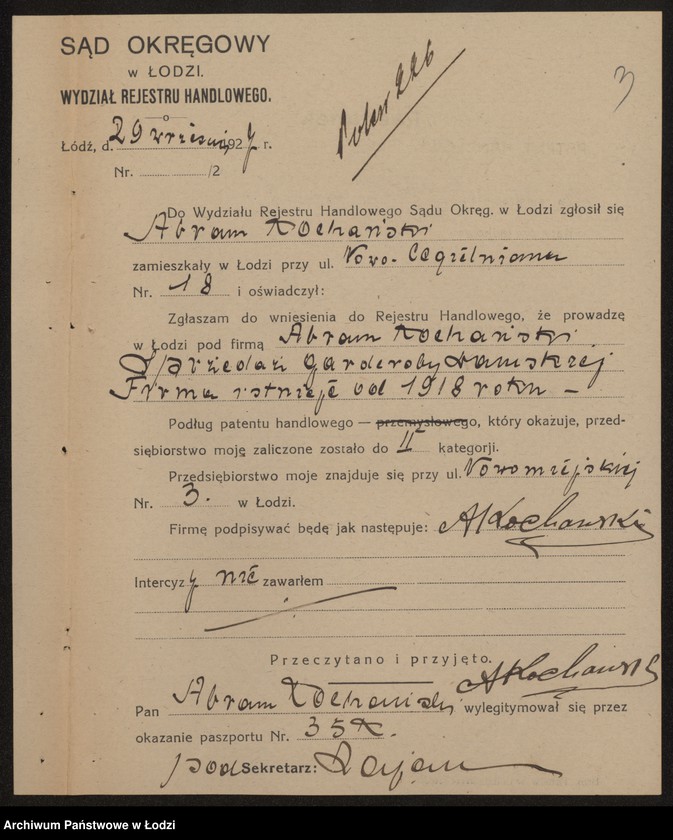 SĄD OKRĘGOWY
w ŁODZI.
WYDZIAŁ REJESTRU HANDLOWEGO.
3
Łódź, d. 29 wrześni 1927 r.
226
Nr. /2
Do Wydziału Rejestru Handlowego Sądu Okręg. w Łodzi zgłosił się
Abram Kochański
zamieszkały w Łodzi przy ul. Nowo-Cegielniana
Nr. 18 i oświadczył:
Zgłaszam do wniesienia do Rejestru Handlowego, że prowadzę
w Łodzi pod firmą Abram Kochański
Sprzedaż garderoby damskiej
Firma istnieje od 1918 roku —
Podług patentu handlowego — przemysłowego, który okazuje, przed-
siębiorstwo moję zaliczone zostało do II kategorji.
Przedsiębiorstwo moje znajduje się przy ul. Nowomiejskiej
Nr. 3. w Łodzi.
Firmę podpisywać będę jak następuje: AKochański
Intercyzy nie zawarłem
Przeczytano i przyjęto.
AKochański
Pan Abram Kochański wylegitymował się przez
okazanie paszportu Nr.
pod Sekretarz:
Archiwum Państwowe w Łodzi